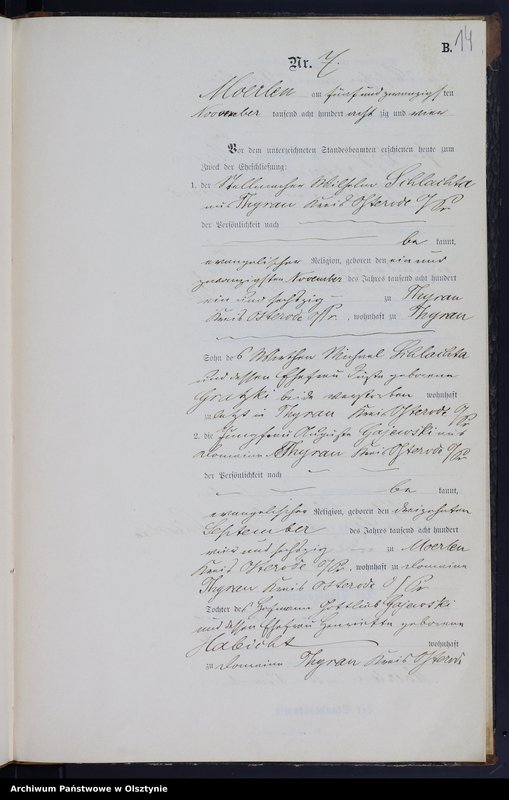 B. 14
Nr. 7.
Moerlen am fünf und zwanzigsten
November tausend acht hundert acht zig und vier
Vor dem unterzeichneten Standesbeamten erschienen heute zum
Zweck der Eheschließung:
1. der Stellmacher Wilhelm Schlachta
aus Thyrau Kreis Osterode O/Pr
der Persönlichkeit nach
be kannt,
evangelischer Religion, geboren den ein und
zwanzigsten November des Jahres tausend acht hundert
ein und sechszig zu Thyrau
Kreis Osterode O/Pr. , wohnhaft zu Thyrau
Sohn des Wirthen Michael Schlachta
und dessen Ehefrau geborene
beide verstorben wohnhaft
zu letzt in Thyrau Kreis Osterode O/Pr
2. die Jungfrau Auguste Gajewski aus
Domaine Thyrau Kreis Osterode O/Pr
der Persönlichkeit nach
be kannt,
evangelischer Religion, geboren den dreizehnten
September des Jahres tausend acht hundert
vier und sechszig zu Moerlen
Kreis Osterode O/Pr. , wohnhaft zu Domaine
Thyrau Kreis Osterode O/Pr
Tochter des Hofmann Gottlieb Gajewski
und dessen Ehefrau Henriette geborene
Habicht wohnhaft
zu Domaine Thyrau Kreis Osterode
Archiwum Państwowe w Olsztynie